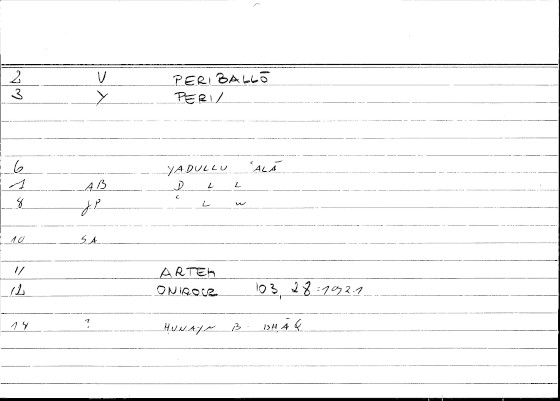 2 V PERIBALLŌ
3 Y PERI/
6 YADULLU ʿALĀ
1 AB D L L
8 JP ʿ L W
10 SA
11 ARTEM
12 ONIROCR 103, 28:1921
14 ? HUNAYN B. ISHĀQ